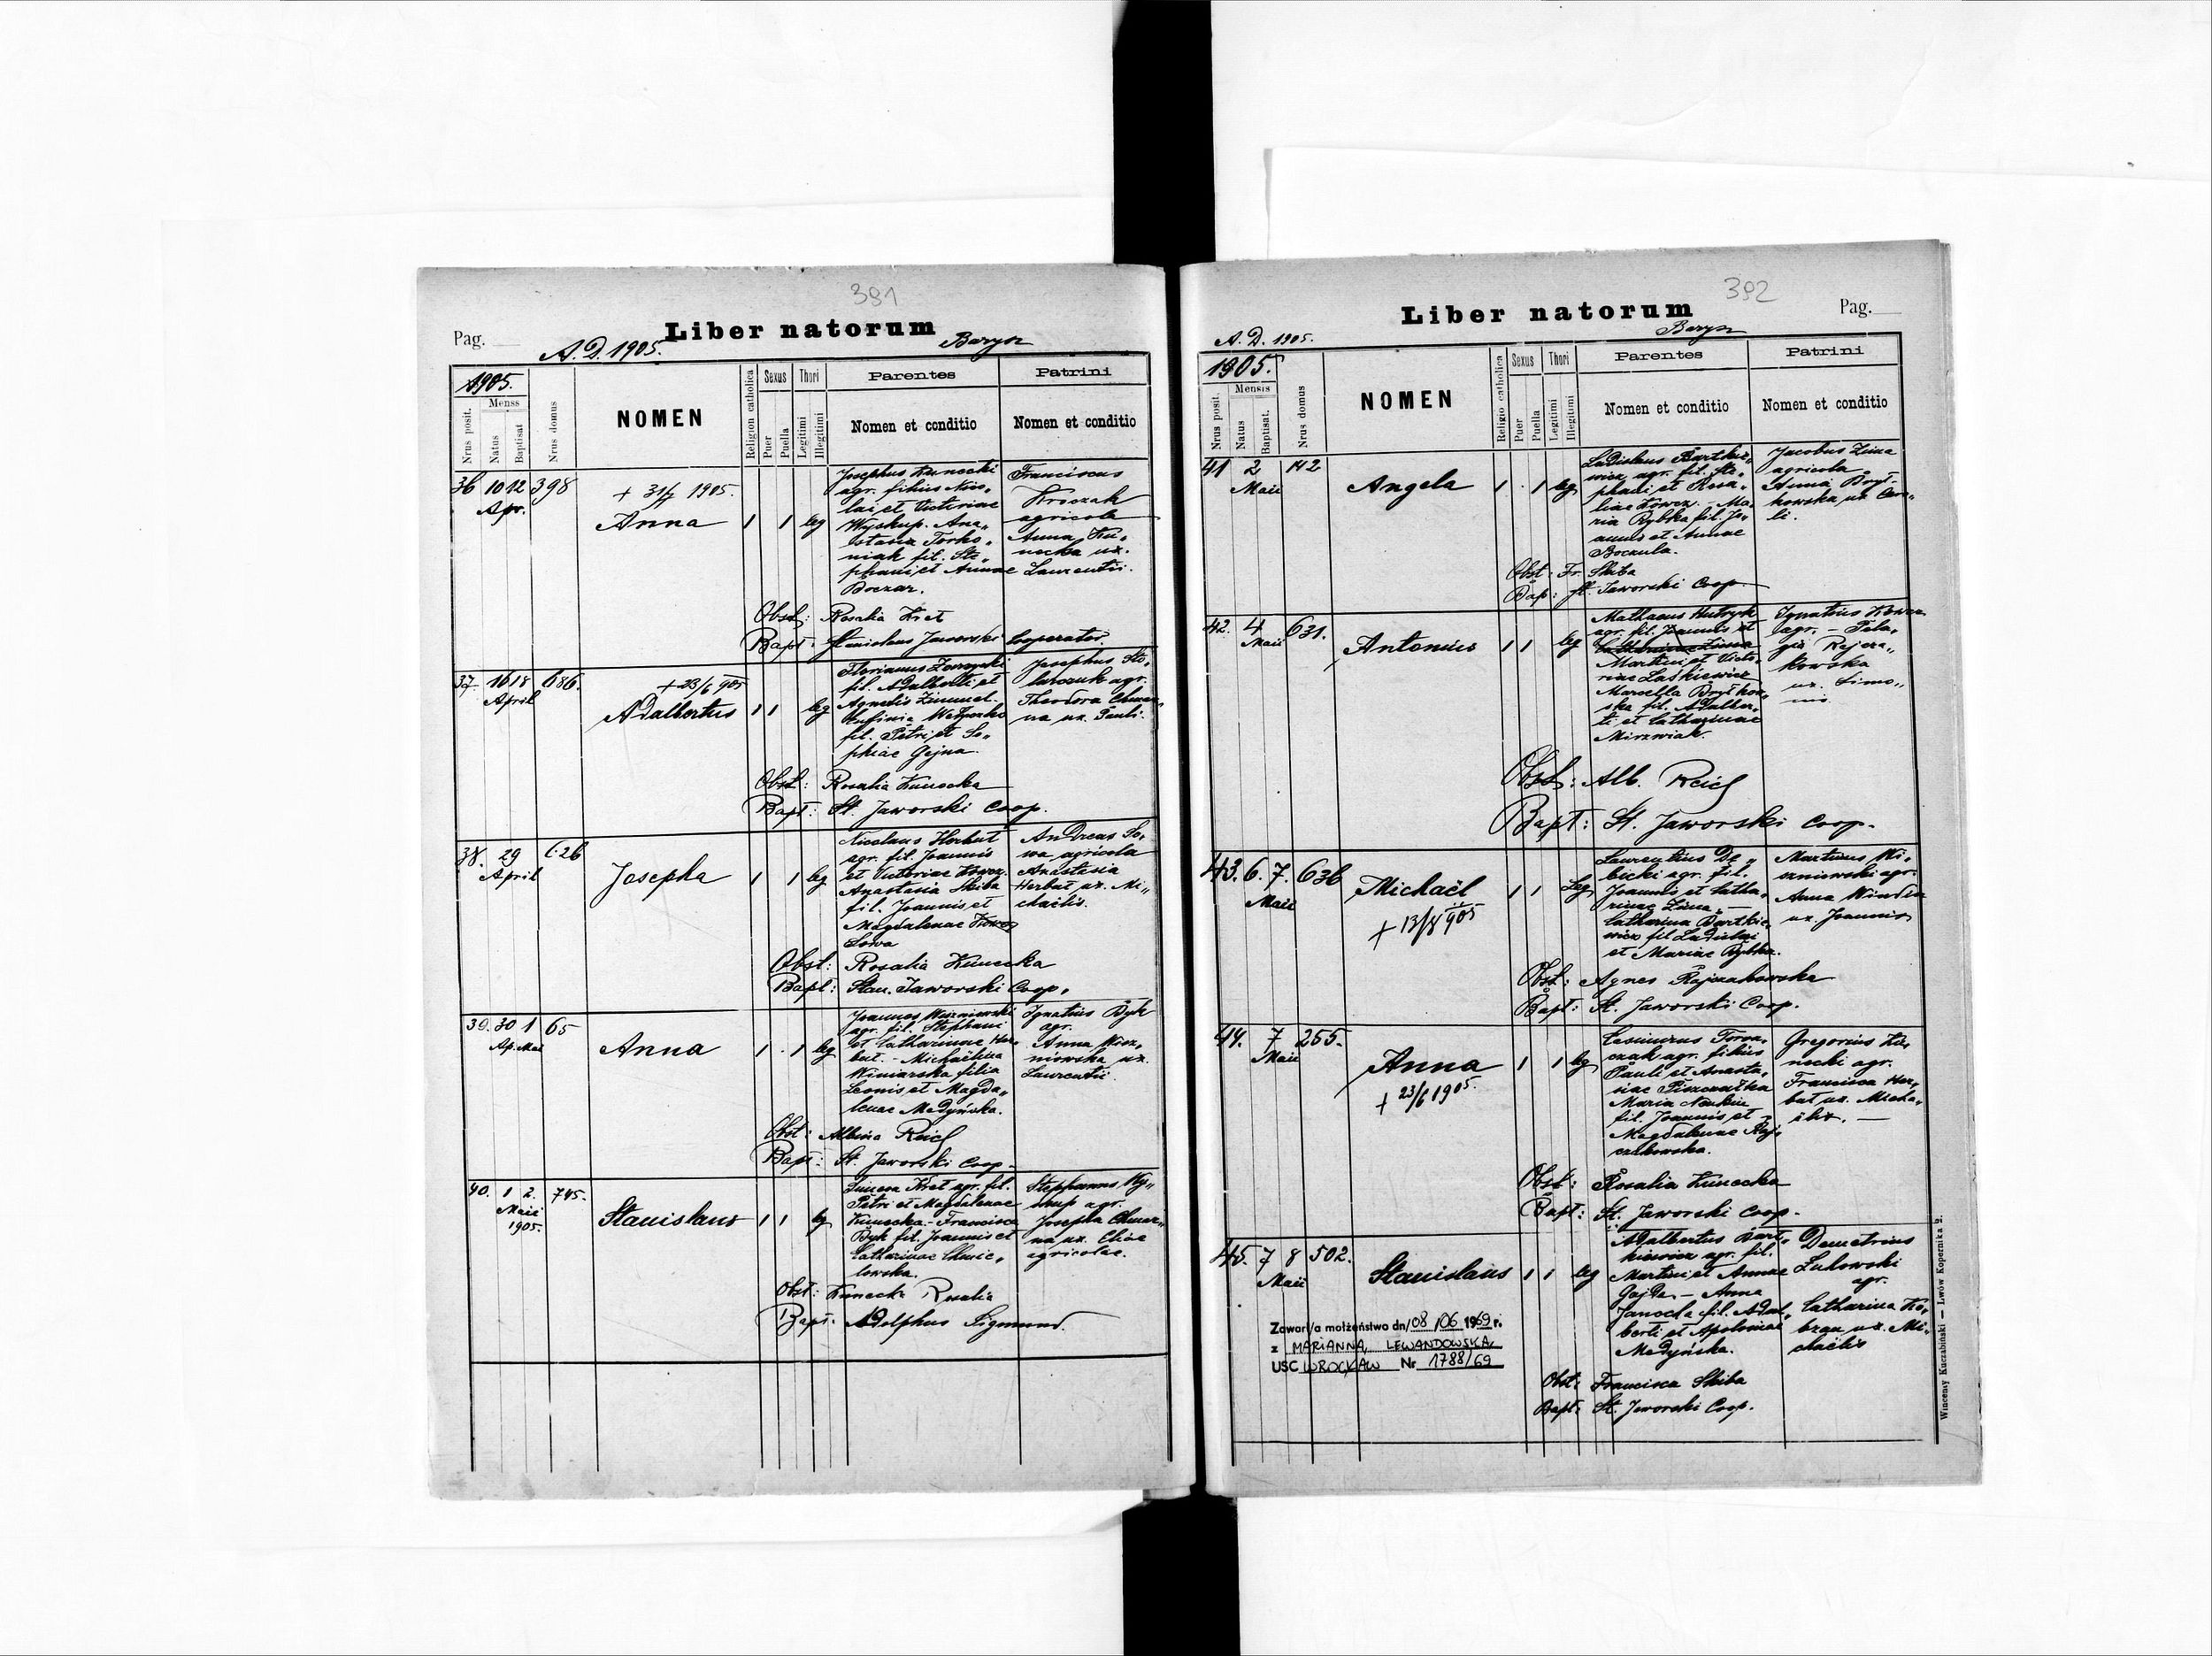 391
Pag.
Liber natorum
A. D. 1905.
Barysz
1905.
Nrus posit.
Menss
Natus
Baptisat
Nrus domus
NOMEN
Religion catholica
Sexus
Puer
Puella
Thori
Legitimi
Illegitimi
Parentes
Nomen et conditio
Patrini
Nomen et conditio
36 10 12 398
Apr.
+ 31/7 1905.
Anna
1 1 leg
Josephus Kunecki
agr. filius Nico„
lai et Victoriae
Wyskup. Ana„
stasia Torko„
niak fil. Ste„
phani et Annae
Boczar.
Franciscus
Kroczak
agricola
Anna Ku„
necka ux.
Laurentii.
Obst: Rosalia Kret
Bapt: Stanislaus Jaworski Cooperator.
37. 16 18 686.
April
+ 23/6 905
Adalbertus
1 1 leg
Florianus
fil. Adalberti et
Agnetis Zimmel.
fil. Petri et So„
phiae Gojna.
Josephus Sto„
larczuk agr.
Theodora
na ux. Pauli.
Obst: Rosalia Kunecka
Bapt: St. Jaworski Coop.
38. 29 626
April
Josepha
1 1 leg
Nicolaus Herbut
agr. fil. Joannis
et Victoriae Kowcz.
Anastasia Skiba
fil. Joannis et
Magdalenae
Sowa
Andreas So„
wa agricola
Anastasia
Herbut ux. Mi„
chaëlis.
Obst: Rosalia Kunecka
Bapt: Stan. Jaworski Coop.
39. 30 1 65
Ap. Mai
Anna
1 1 leg
Joannes Wiszniowski
agr. fil. Stephani
et Catharinae Her„
but. - Michaëlina
Winiarska filia
Leonis et Magda„
lenae Medyńska.
Ignatius Byk
agr.
Anna Wisz„
niowska ux.
Laurentii.
Obst: Albina Reich
Bapt: St. Jaworski Coop.
40. 1 2. 745.
Maii
1905.
Stanislaus
1 1 leg
Kret agr. fil.
Petri et Magdalenae
Kunecka. - Francisca
Byk fil. Joannis et
Catharinae Chmie„
lowska.
Stephanus Wy„
skup agr.
Josepha
na ux. Eliae
agricolae.
Obst: Kunecka Rosalia
Bapt: Adolphus Sigmund.
392
Liber natorum
Pag.
A. D. 1905.
Barysz
1905.
Nrus posit.
Mensis
Natus
Baptisat.
Nrus domus
NOMEN
Religio catholica
Sexus
Puer
Puella
Thori
Legitimi
Illegitimi
Parentes
Nomen et conditio
Patrini
Nomen et conditio
41 2 142
Maii
Angela
1 1 leg
Ladislaus Bartkie„
wicz agr. fil. Ste„
phani et Rosa„
liae Kowcz. - Ma„
ria Rybka fil. Jo„
annis et Annae
Boczula.
Jacobus Zima
agricola
Anna Bryt„
kowska ux.
Obst: Fr. Skiba
Bap: St. Jaworski Coop
42. 4 631.
Maii
Antonius
1 1 leg
Mathaeus
agr. fil. Joannis et
Catharinae Zima
Martini et Victo„
riae Laskiewicz
Marcella Brytkow„
ska fil. Adalber„
ti et Catharinae
Mirzwiak.
Ignatius Kowcz
agr. - Pela„
gia Rejcza„
kowska
ux. Simo„
nis.
Obst: Alb. Reich
Bapt: St. Jaworski Coop.
43. 6. 7. 636
Maii
Michaël
+ 13/8 905
1 1 Leg
Laurentius De„
bicki agr. fil.
Joannis et Catha„
rinae Zima. —
Catharina Bartkie„
wicz fil Ladislai
et Mariae Rybka.
Martinus Wi„
szniowski agr.
Anna
ux. Joannis
Obst: Agnes Rejczakowska
Bapt: St. Jaworski Coop.
44. 7 255.
Maii
Anna
+ 23/6 1905.
1 1 leg
Casimirus
czak agr. filius
Pauli et Anasta„
siae Piszczatka
Maria
fil. Joannis et
Magdalenae Rej„
czakowska.
Gregorius Ku„
necki agr.
Francisca Her„
but ux. Micha„
ëlis. —
Obst: Rosalia Kunecka
Bapt: St. Jaworski Coop.
45. 7 8 502.
Maii
Stanislaus
1 1 leg
Adalbertus Bart„
kiewicz agr. fil.
Martini et Annae
Gajda. - Anna
Janocha fil. Adal„
berti et Apoloniae
Medyńska.
Demetrius
Lukowski
agr.
Catharina Ko„
brzan ux. Mi„
chaëlis
Zawarł/a małżeństwo dn/08/06 1969 r.
z MARIANNA LEWANDOWSKA
USC WROCŁAW Nr 1788/69
Obst: Francisca Skiba
Bapt: St. Jaworski Coop.
Wincenty Kuczabiński — Lwów Kopernika 2.